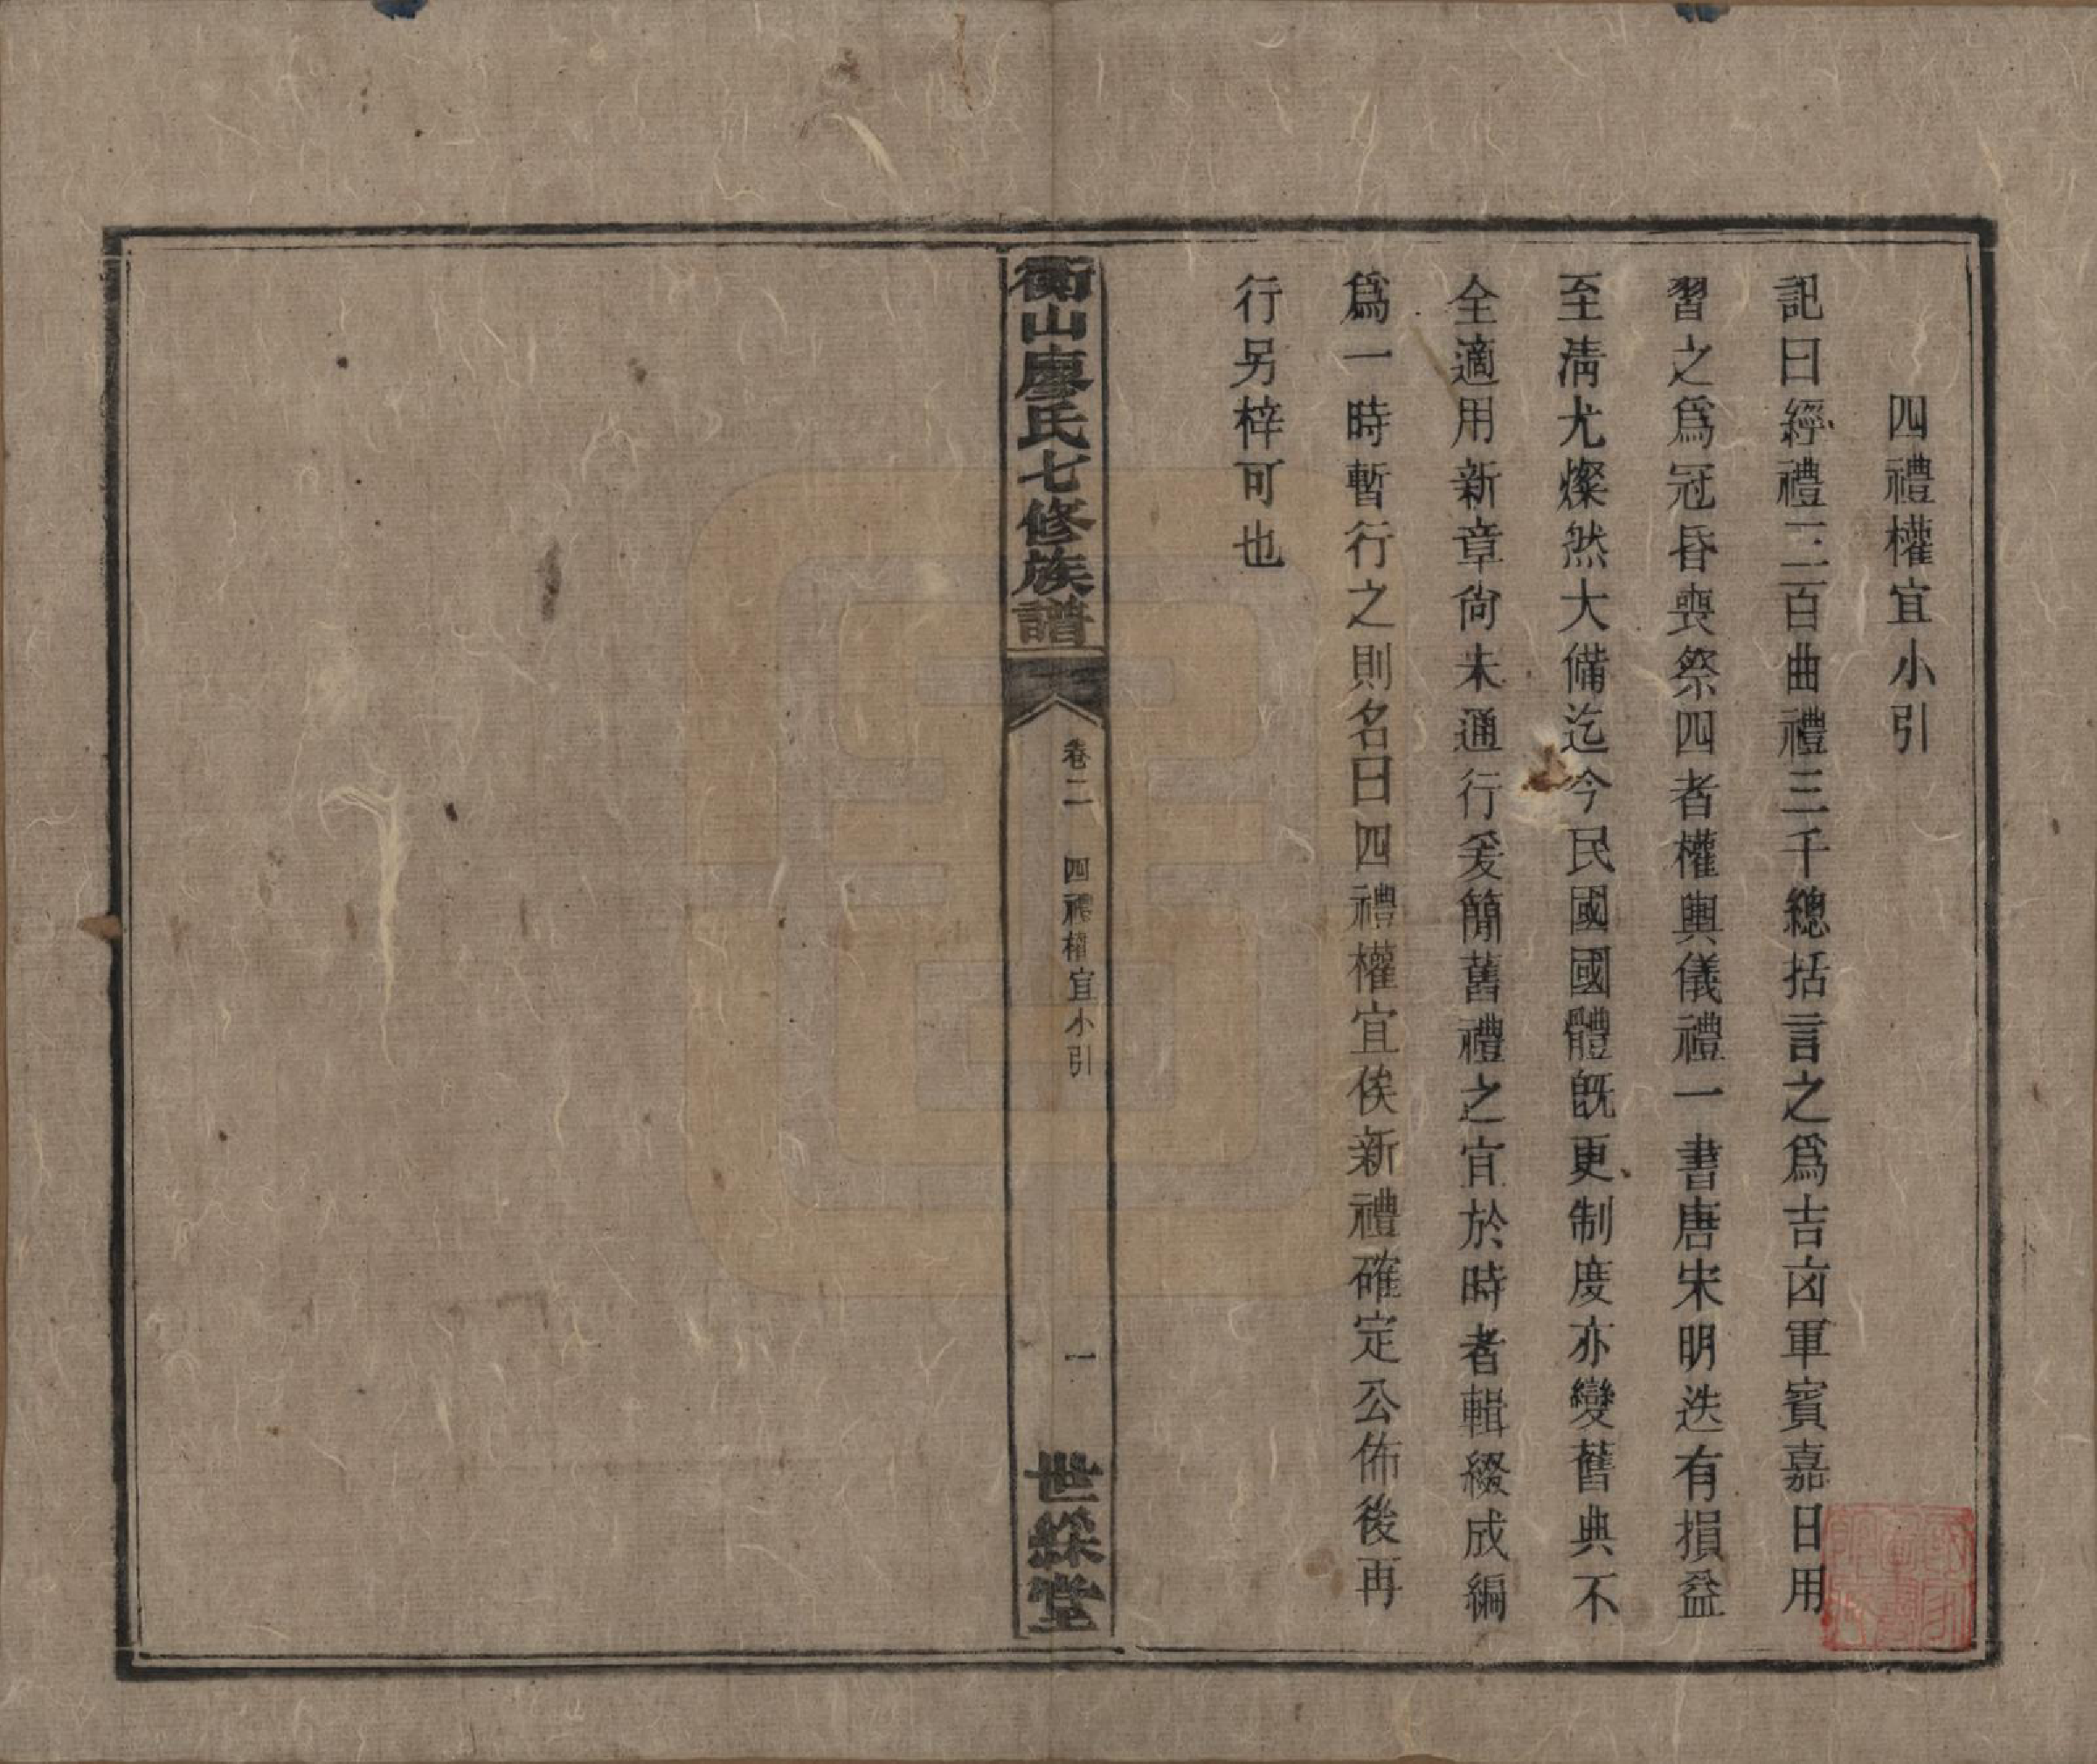 四禮權宜小引
記曰經禮三百曲禮三千總括言之爲吉凶軍賓嘉日用
習之爲冠昏喪祭四者權輿儀禮一書唐宋明迭有損益
至淸尤燦然大備迄今民國國體旣更制度亦變舊典不
全適用新章尙未通行爰簡舊禮之宜於時者輯綴成編
爲一時暫行之則名曰四禮權宜俟新禮確定公佈後再
行另梓可也
衡山廖氏七修族譜
卷二
四禮權宜小引
一
世綵堂